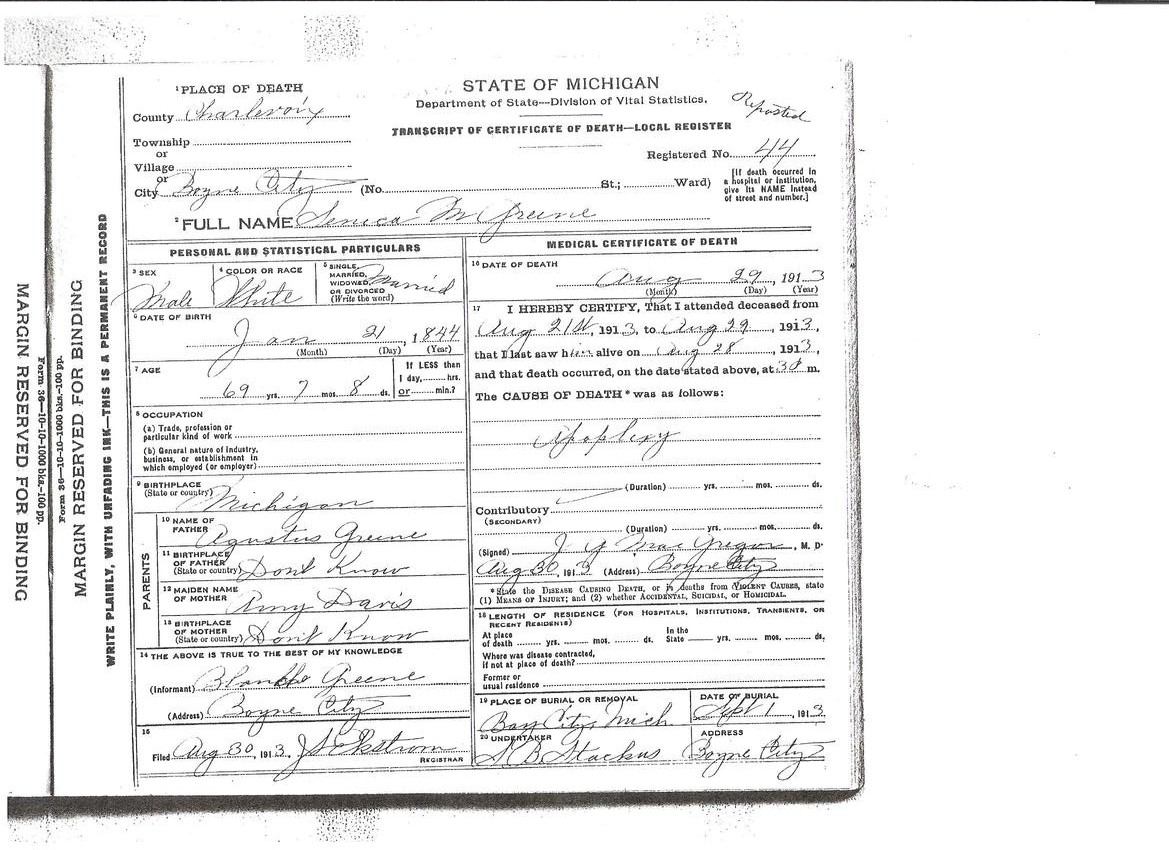 MARGIN RESERVED FOR BINDING
Form 36—10-10-1000 bks.-100 pp.
Form 36—10-10-1000 bks.-100 pp.
MARGIN RESERVED FOR BINDING
WRITE PLAINLY, WITH UNFADING INK—THIS IS A PERMANENT RECORD
STATE OF MICHIGAN
Department of State—Division of Vital Statistics.
TRANSCRIPT OF CERTIFICATE OF DEATH—LOCAL REGISTER
Reported
1 PLACE OF DEATH
County Charlevoix
Township
or
Village
or
City Boyne City (No. St.; Ward)
Registered No. 44
[If death occurred in
a hospital or institution,
give its NAME instead
of street and number.]
2 FULL NAME Seneca M Greene
PERSONAL AND STATISTICAL PARTICULARS
3 SEX
Male
4 COLOR OR RACE
White
5 SINGLE
MARRIED,
WIDOWED
OR DIVORCED
(Write the word)
Married
6 DATE OF BIRTH
Jan 21, 1844
(Month) (Day) (Year)
7 AGE
69 yrs. 7 mos. 8 ds.
If LESS than
1 day, hrs.
or min.?
8 OCCUPATION
(a) Trade, profession or
particular kind of work
(b) General nature of industry,
business, or establishment in
which employed (or employer)
9 BIRTHPLACE
(State or country)
Michigan
PARENTS
10 NAME OF
FATHER
Agustus Greene
11 BIRTHPLACE
OF FATHER
(State or country)
Dont Know
12 MAIDEN NAME
OF MOTHER
Amy Davis
13 BIRTHPLACE
OF MOTHER
(State or country)
Dont Know
14 THE ABOVE IS TRUE TO THE BEST OF MY KNOWLEDGE
(Informant) Blanche Greene
(Address) Boyne City
15
Filed Aug 30, 1913. J S Ekstrom
REGISTRAR
MEDICAL CERTIFICATE OF DEATH
16 DATE OF DEATH
Aug 29, 1913
(Month) (Day) (Year)
17 I HEREBY CERTIFY, That I attended deceased from
Aug 21st, 1913, to Aug 29, 1913,
that I last saw him alive on Aug 28, 1913,
and that death occurred, on the date stated above, at m.
The CAUSE OF DEATH* was as follows:
Apoplexy
(Duration) yrs. mos. ds.
Contributory
(SECONDARY)
(Duration) yrs. mos. ds.
(Signed) J G MacGregor, M. D.
Aug 30, 1913 (Address) Boyne City
*State the DISEASE CAUSING DEATH, or in deaths from VIOLENT CAUSES, state
(1) MEANS OF INJURY; and (2) whether ACCIDENTAL, SUICIDAL, or HOMICIDAL.
18 LENGTH OF RESIDENCE (FOR HOSPITALS, INSTITUTIONS, TRANSIENTS, OR
RECENT RESIDENTS)
At place
of death yrs. mos. ds.
In the
State yrs. mos. ds.
Where was disease contracted,
if not at place of death?
Former or
usual residence
19 PLACE OF BURIAL OR REMOVAL
Bay City, Mich
DATE OF BURIAL
Sept 1, 1913
20 UNDERTAKER
S B Stackus
ADDRESS
Boyne City